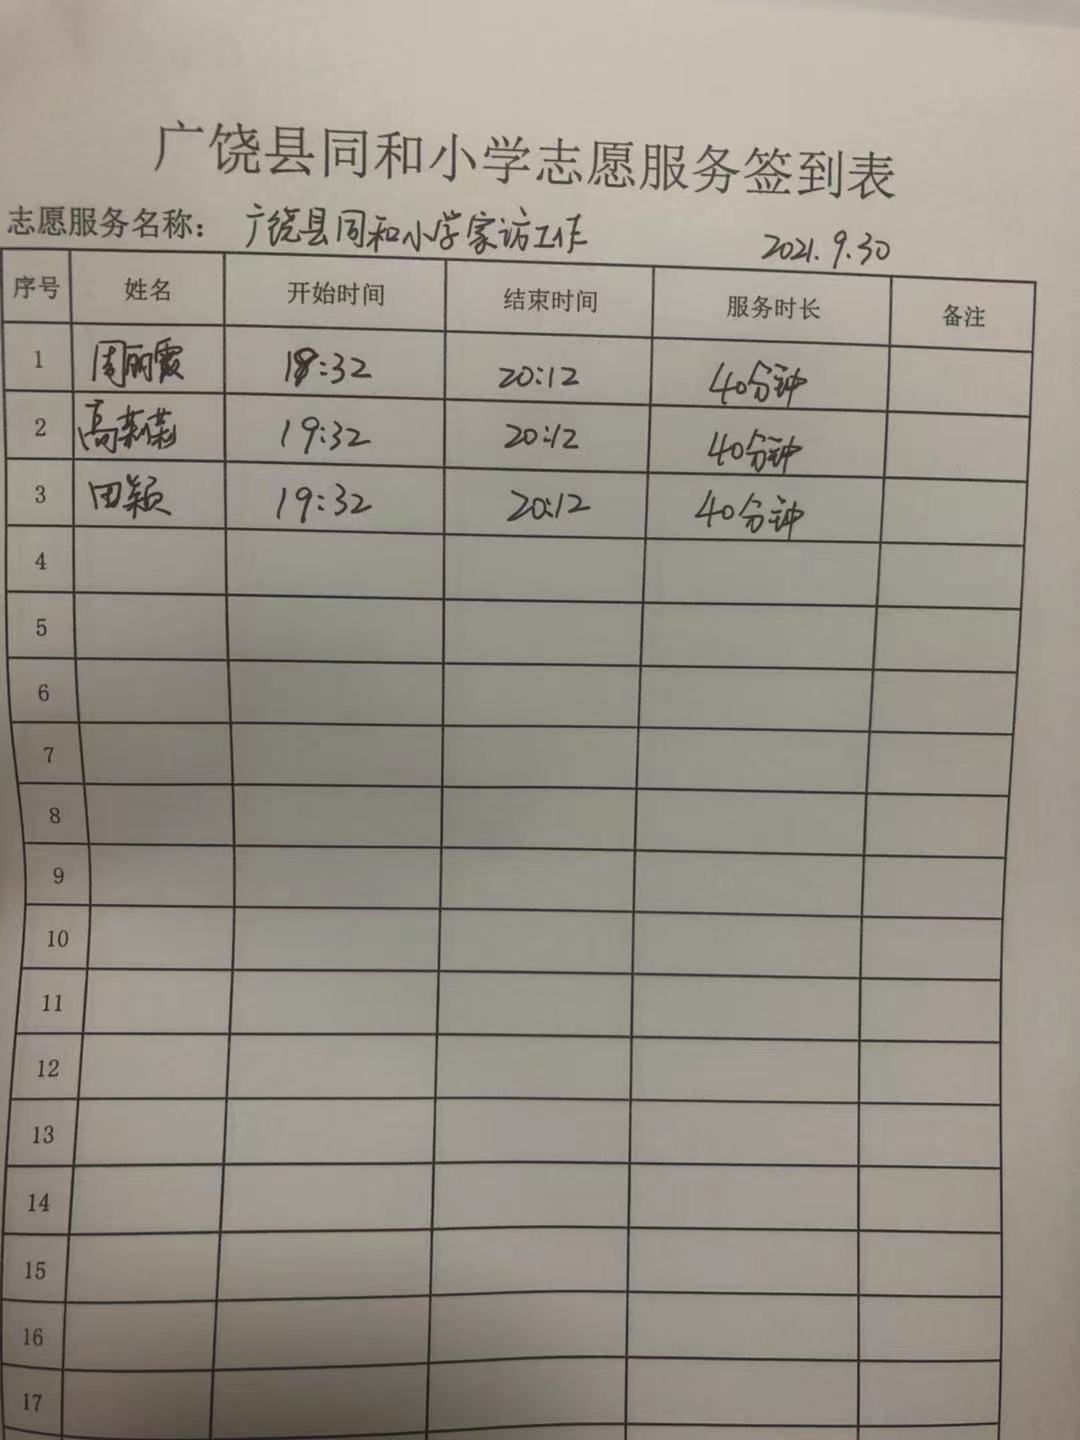 广饶县同和小学志愿服务签到表
志愿服务名称： 广饶县同和小学家访工作 2021.9.30
序号 姓名 开始时间 结束时间 服务时长 备注
1 周丽霞 :32 20:12 40分钟
2 高 19:32 20:12 40分钟
3 田颖 19:32 20:12 40分钟
4
5
6
7
8
9
10
11
12
13
14
15
16
17